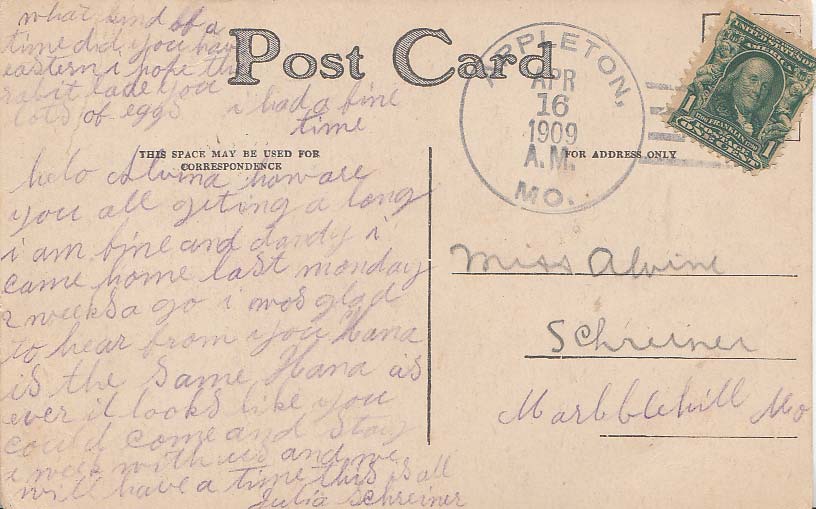 what kind of a
time did you have
eastern i hope the
rabit laid you
lots of eggs i had a fine
time
Post Card
THIS SPACE MAY BE USED FOR
CORRESPONDENCE
FOR ADDRESS ONLY
APPLETON,
APR
16
1909
A.M.
MO.
UNITED STATES OF
AMERICA
1 1
helo Alvina how are
you all geting a long
i am fine and dandy i
came home last monday
2 weeks a go i was glad
to hear from you Hana
is the same Hana as
ever it looks like you
could come and stay
i week with us and we
will have a time this is all
Julia Schreiner
Miss Alvine
Schreiner
Marbblehill Mo